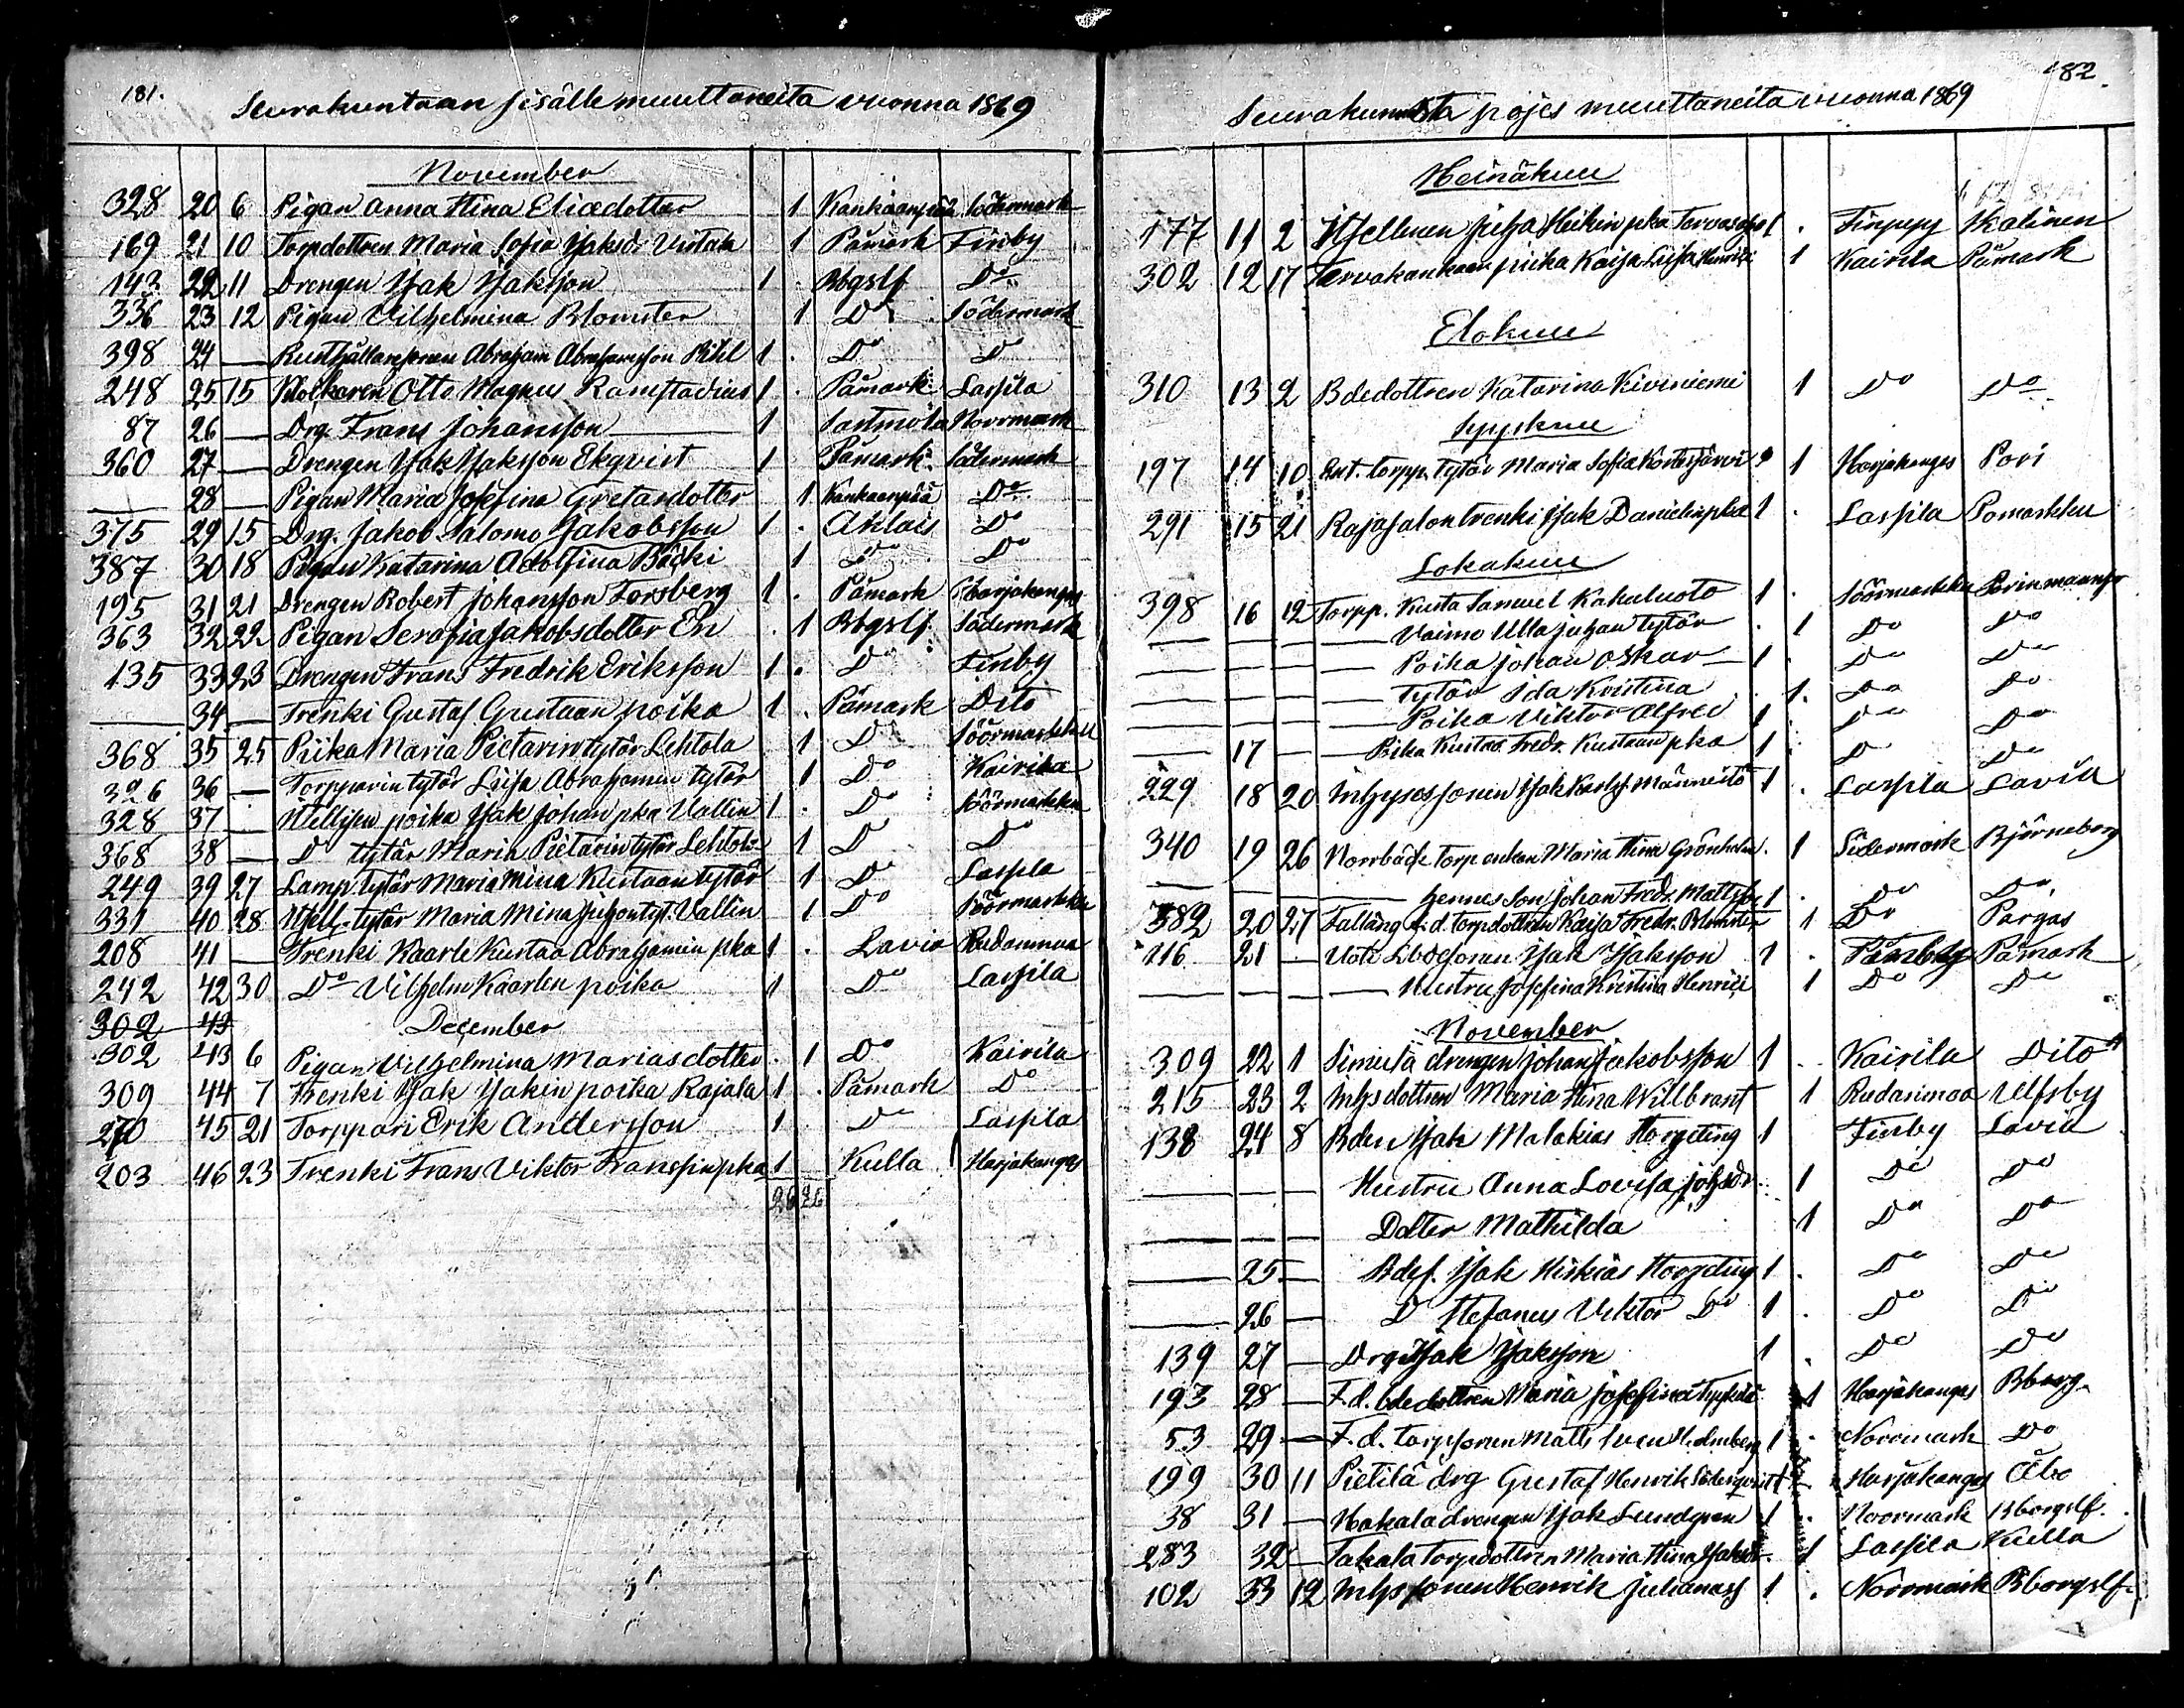 181.
Seurakuntaan sisälle muuttaneita vuonna 1869
November
328 20 6 Pigan Anna Stina Eliædotter 1 Kankaanpää Södermark
169 21 10 Torpdottren Maria Sofia Isaksdr 1 Påmark Finby
143 22 11 Drengen Isak Isaksson 1 . Bbgslf Do
336 23 12 Pigan Vilhelmina Blomster 1 Do Södermark
398 24 — Rusthållaresonen Abraham Abrahamsson Pihl 1 . Do Do
248 25 15 Klockaren Otto Magnus Ramstadius 1 . Påmark Lassila
87 26 — Drg. Frans Johansson 1 Sastmola Norrmark
360 27 — Drengen Isak Isaksson Ekqvist 1 Påmark Södermark
— 28 — Pigan Maria Josefina Gretasdotter 1 Kankaanpää Do
375 29 15 Drg. Jakob Salomo Jakobsson 1 . Ahlais Do
387 30 18 Pigan Katarina Adolfina Bäcki 1 Do Do
195 31 21 Drengen Robert Johansson Forsberg 1 . Påmark Harjakangas
363 32 22 Pigan Serafia Jakobsdotter En . 1 Bbgslf Södermark
135 33 23 Drengen Frans Fredrik Eriksson 1 . Do Finby
— 34 — Trenki Gustaf Gustaan poika 1 . Påmark Dito
368 35 25 Piika Maria Pietarintytär Lehtola 1 Do Söörmarkku
326 36 — Torpparin tytär Liisa Abrahamin tytär 1 Do Kairila
328 37 — Itellisen poika Isak Johan pka Vallin 1 . Do Söörmarkku
368 38 — D tytär Maria Pietarintytär Lehtola 1 D Do
249 39 27 Lamp. tytär Maria Mina Kustaan tytär 1 Do Lassila
331 40 28 Itsell. tytär Maria Mina Juhon tyt. Vallin 1 Do Söörmarkku
208 41 — Trenki Kaarle Kustaa Abrahamin pka 1 . Lavia Rudanmaa
242 42 30 Do Vilhelm Kaarlen poika 1 Do Lassila
302 43 December
302 43 6 Pigan Vilhelmina Mariasdotter . 1 Do Kairila
309 44 7 Trenki Isak Isakin poika Rajala 1 . Påmark Do
270 45 21 Torppari Erik Andersson 1 Do Lassila
203 46 23 Trenki Frans Viktor Franssin pka 1 Kulla Harjakangas
26 26
182.
Seurakunnasta pojes muuttaneita vuonna 1869
Heinäkuu
177 11 2 Itsellinen Juha Heikin pka 1 . Kalinen
302 12 17 Tervakankaan piika Kaisa Liisa Henriks 1 Kairila Påmark
Elokuu
310 13 2 Bdedottren Katarina Kiviniemi 1 Do Do
Syyskuu
197 14 10 Ent. torpp. tytär Maria Sofia Kortesjärvi 1 Harjakangas Pori
291 15 21 Rajasalon trenki Isak Danielin pka 1 . Lassila Pomarkku
Lokakuu
398 16 12 Torpp. Kusta Samuel Kahaluoto 1 . Söörmarkku Porinmaansr
— — — Vaimo Ulla Juhan tytär . 1 Do Do
— — — Poika Johan Oskar 1 . Do Do
— — — tytär Ida Kristina . 1. Do Do
— — — Poika Viktor Alfred 1 Do Do
— 17 — Poika Kustaa Fredr. Kustaan pka 1 D Do
229 18 20 Inhysessonen Isak Karlss. Männistö 1 . Lassila Lavia
340 19 26 Norrbäck torp enkan Maria Stina Grönholm . 1 Södermark Björneborg
— — — hennes Son Johan Fredr. Mattss. 1 . Do Do
382 20 27 Falläng f. d. torpdottren Kaisa Fredr. Blomster 1 Do Pargas
116 21 — Uoti Lbdesonen Isak Isaksson 1 . Påmark
— — — Hustru Josefina Kristina Henrici 1 Do Do
November
309 22 1 Simula drengen Johan Jakobsson 1 . Kairila Dito
215 23 2 Inhysdottren Maria Stina Willbrant 1 Rudanmaa Ulfsby
138 24 8 Bden Isak Malakias Horgding 1 Finby Lavia
— — — Hustru Anna Lovisa Johsdr. 1 Do Do
— — — Dotter Mathilda 1 Do Do
— 25 — Bdes. Isak Hiskias Horgding 1 . Do Do
— 26 — D Stefanus Viktor Do 1 . Do Do
139 27 — Drg Isak Isaksson 1 . Do Do
193 28 — F. d. bdedottren Maria Josefina 1 Harjakangas Bborg.
53 29 — F. d. torpsonen Matts Sven Holmberg 1 . Norrmark Do
199 30 11 Pietilä drg Gustaf Henrik Söderqvist 1 Harjakangas Åbo
38 31 — Hakala drengen Isak Lundgren 1 . Norrmark Bborgslf.
283 32 — Takala torpdottren Maria Stina Isaksdr. 1 Lassila Kulla
102 33 12 Inhyssonen Henrik Julianass 1 . Norrmark Bborgslf.